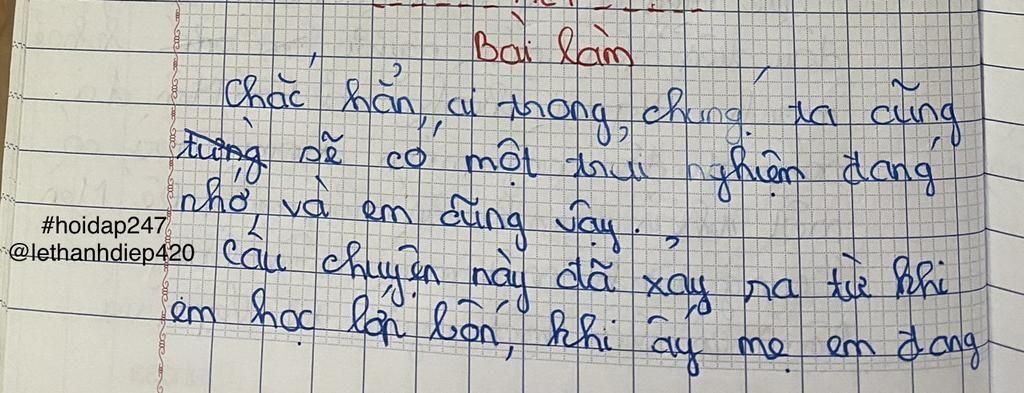 Bài làm
Chắc hẳn, ai trong chúng ta cũng
từng sẽ có một trải nghiệm đáng
nhớ, và em cũng vậy.
#hoidap247
@lethanhdiep420
Câu chuyện này đã xảy ra từ khi
em học lớp bốn, khi ấy mẹ em đang